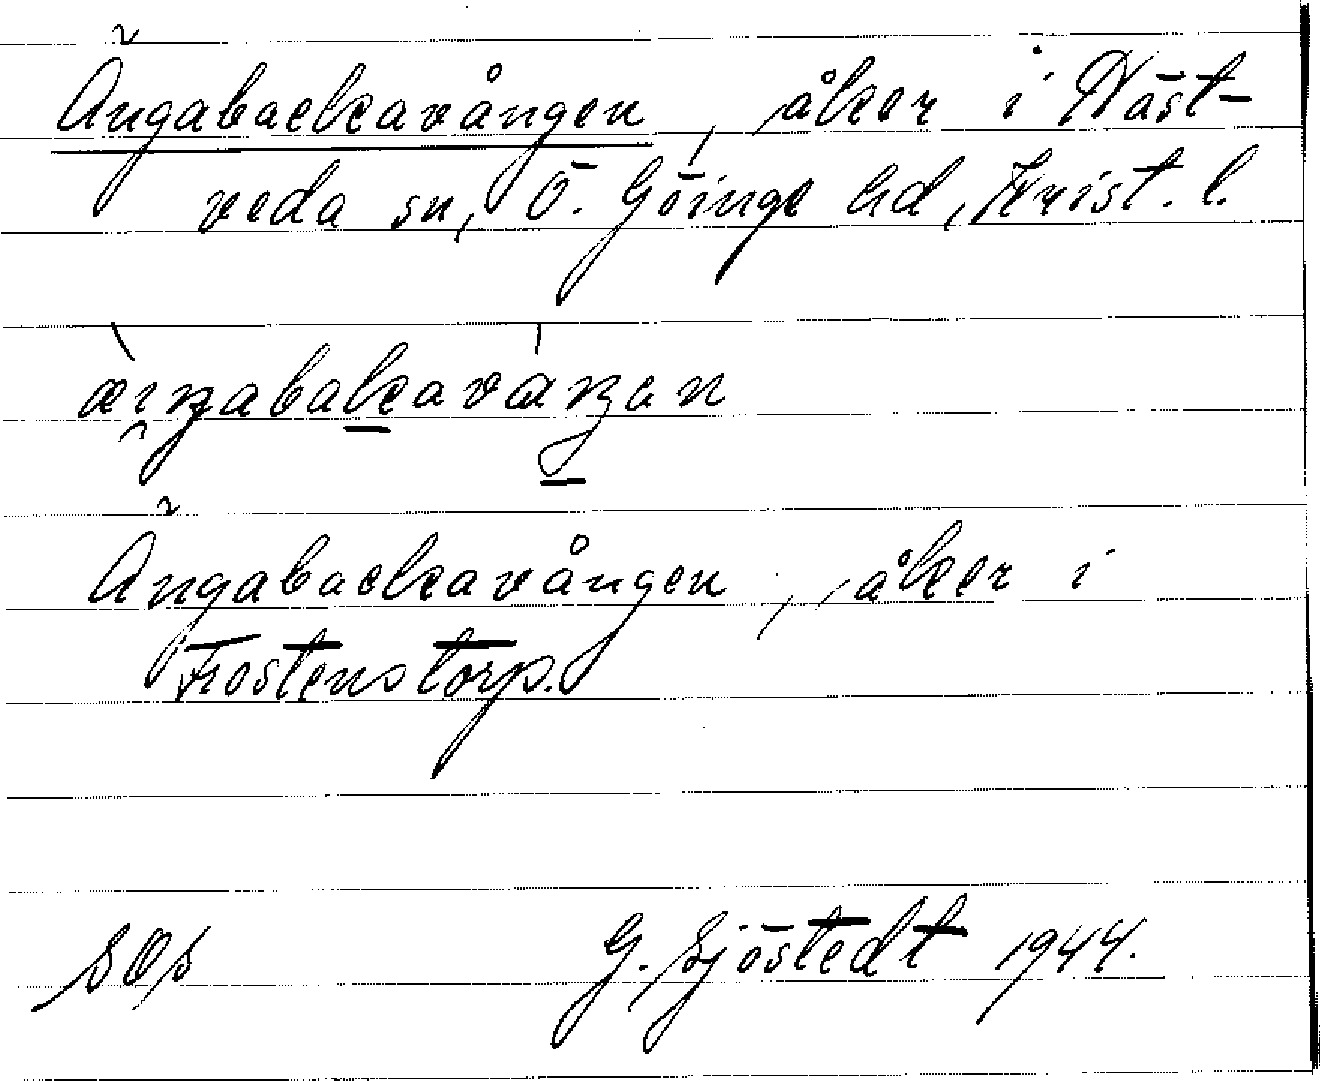 Ängabackavången, åker i Näst-
veda sn, Ö. Göinge hd, Krist. l.
Ängabackavången, åker i
Frostenstorp.
SOS G. Sjöstedt 1944.